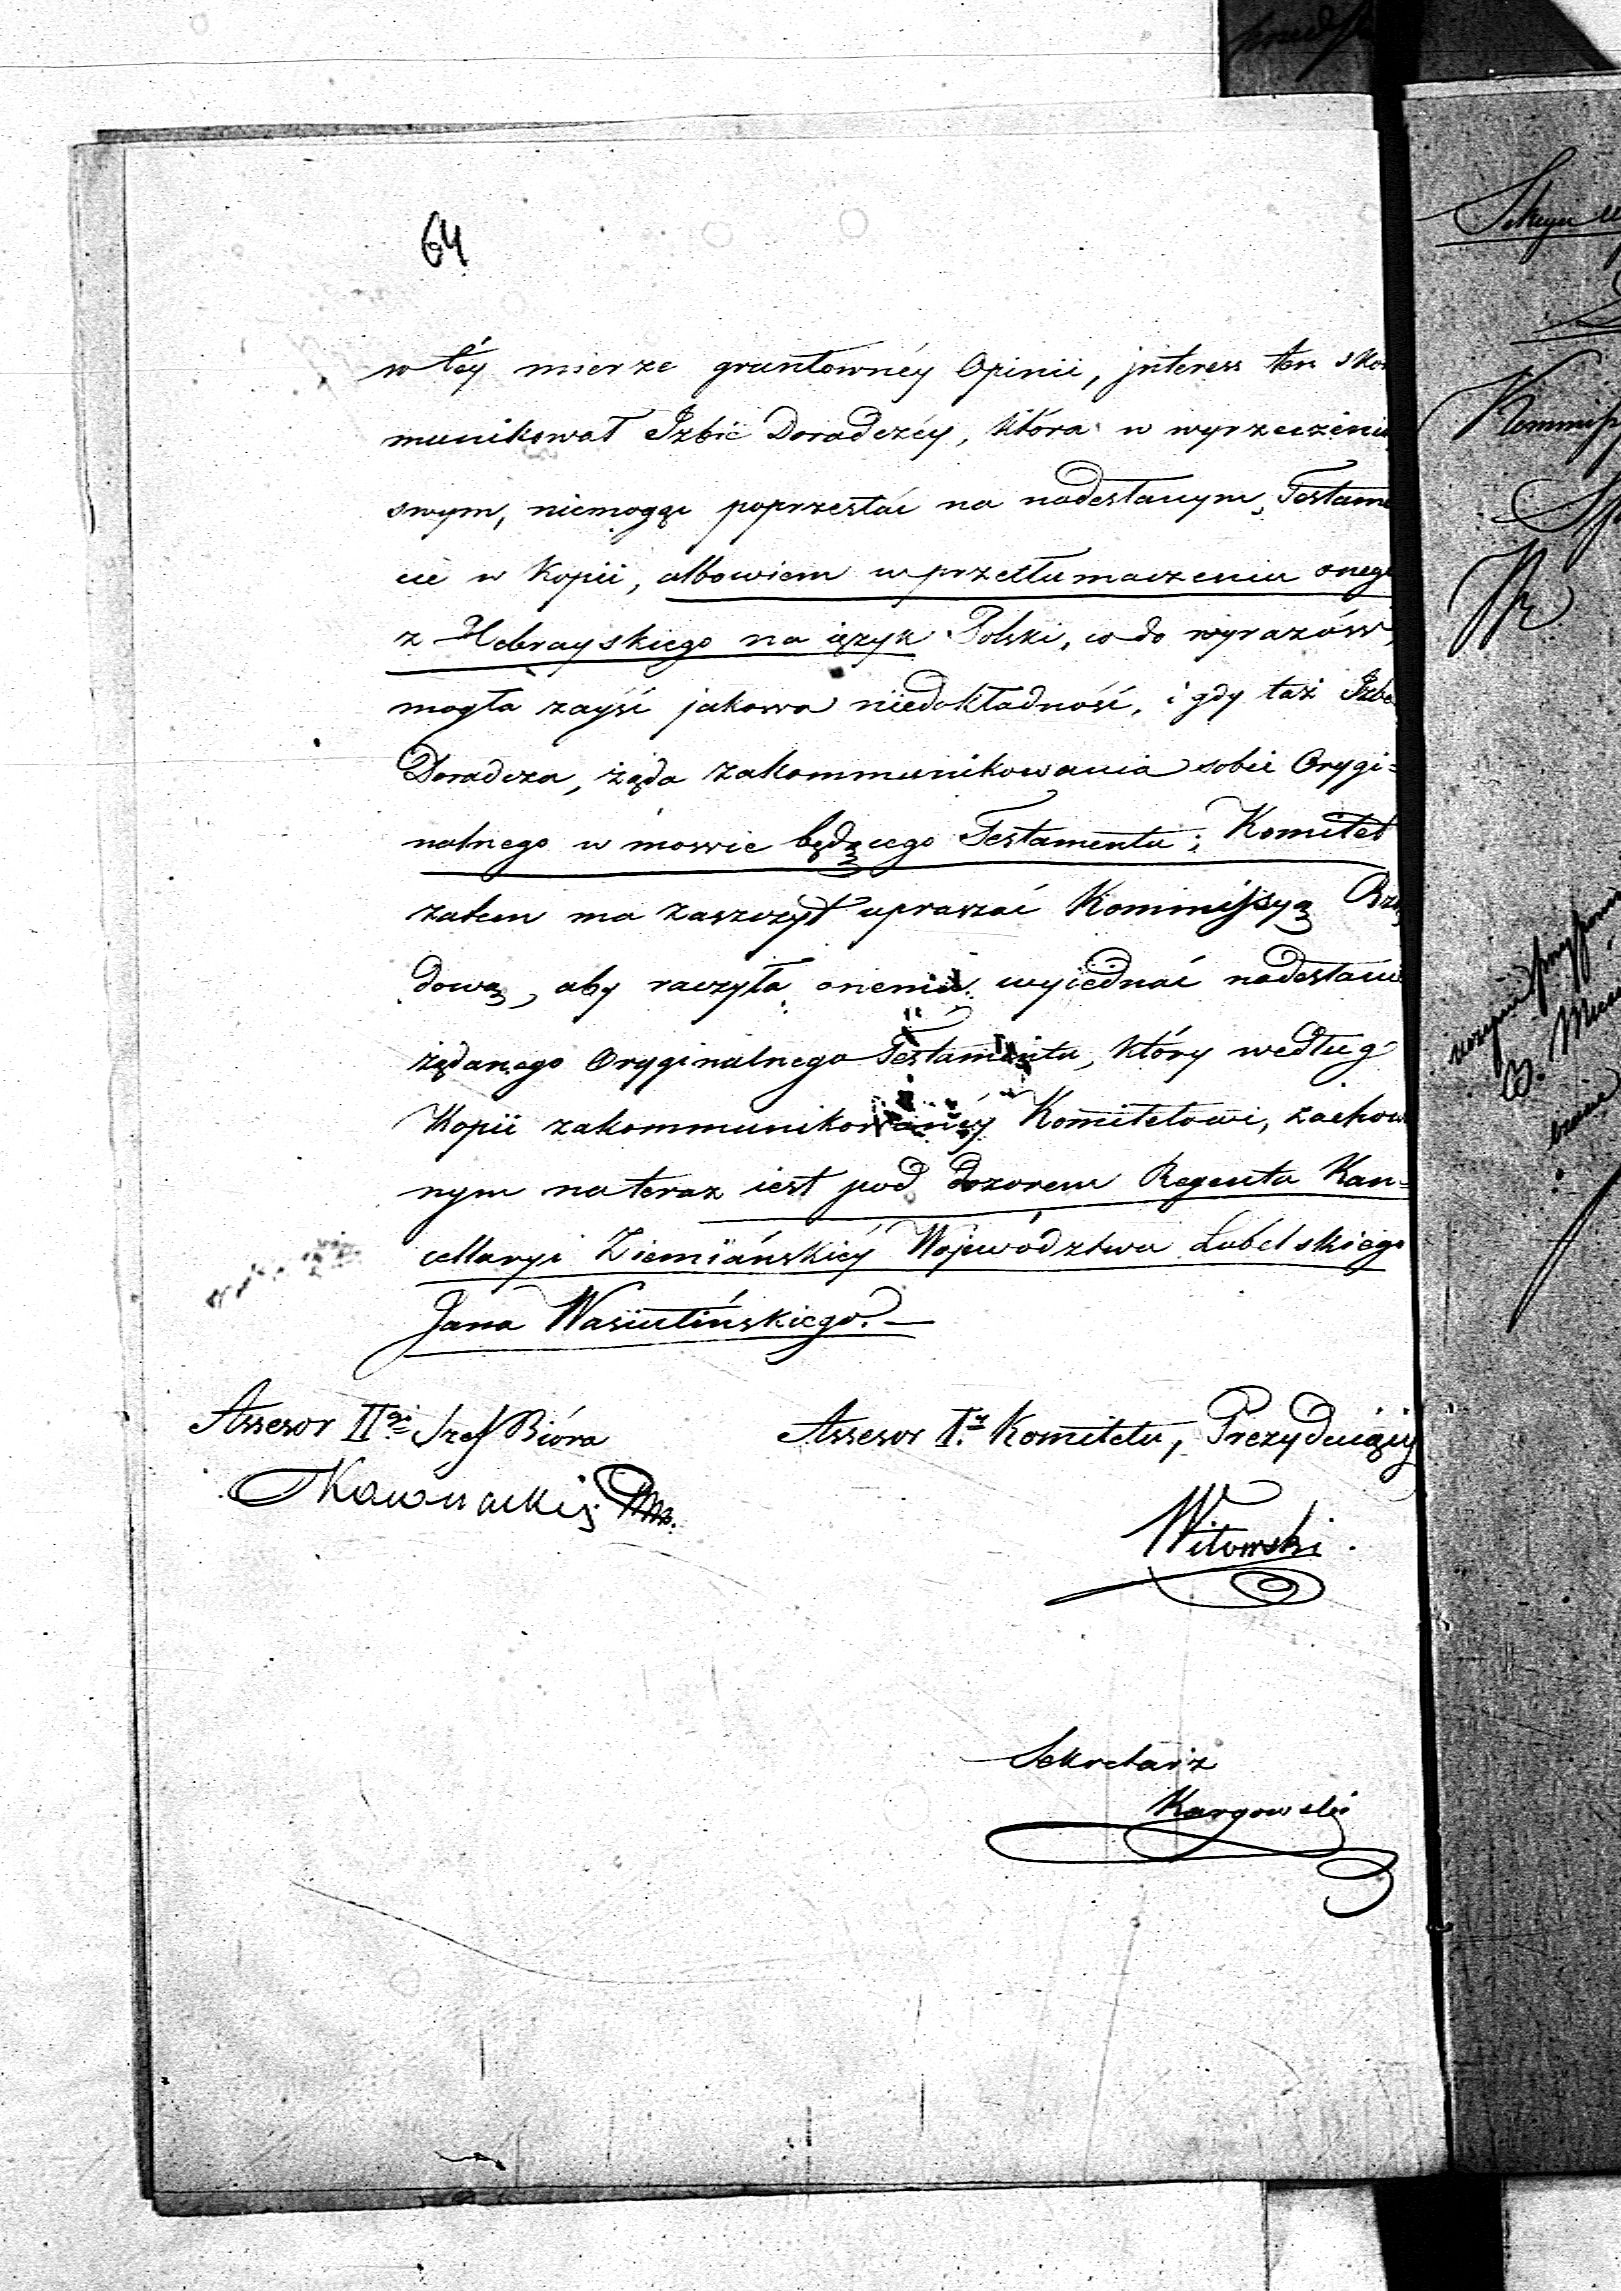 64
w téy mierze gruntownéy Opinii, jnteress ten skom
munikował Izbie Doradczéy, która w wyrzeczeniu
swym, niemogąc poprzestać na nadesłanym Testamen
cie w Kopii, albowiem w przetłumaczeniu onego
z Hebrayskiego na ięzyk Polski, co do wyrazów,
mogła zayść jakowa niedokładność, i gdy taż Izba
Doradcza, żąda zakommunikowania sobie Orygi=
nalnego w mowie będącego Testamentu; Komitet
zatem ma zaszczyt upraszać Kommissyą Rzą
dową, aby raczyła onemu wyiednać nadesłanie
żądanego Oryginalnego Testamentu, który według
Kopii zakommunikowanéy Komitetowi, zachowa
nym na teraz iest pod dozorem Regenta Kan=
cellaryi Ziemiańskiéy Województwa Lubelskiego
Jana Wasiutińskiego.—
Assesor IIgi Szef Bióra
Assesor I. Komitetu, Prezyduiący
Witowski.
Sekretarz
Kargowski